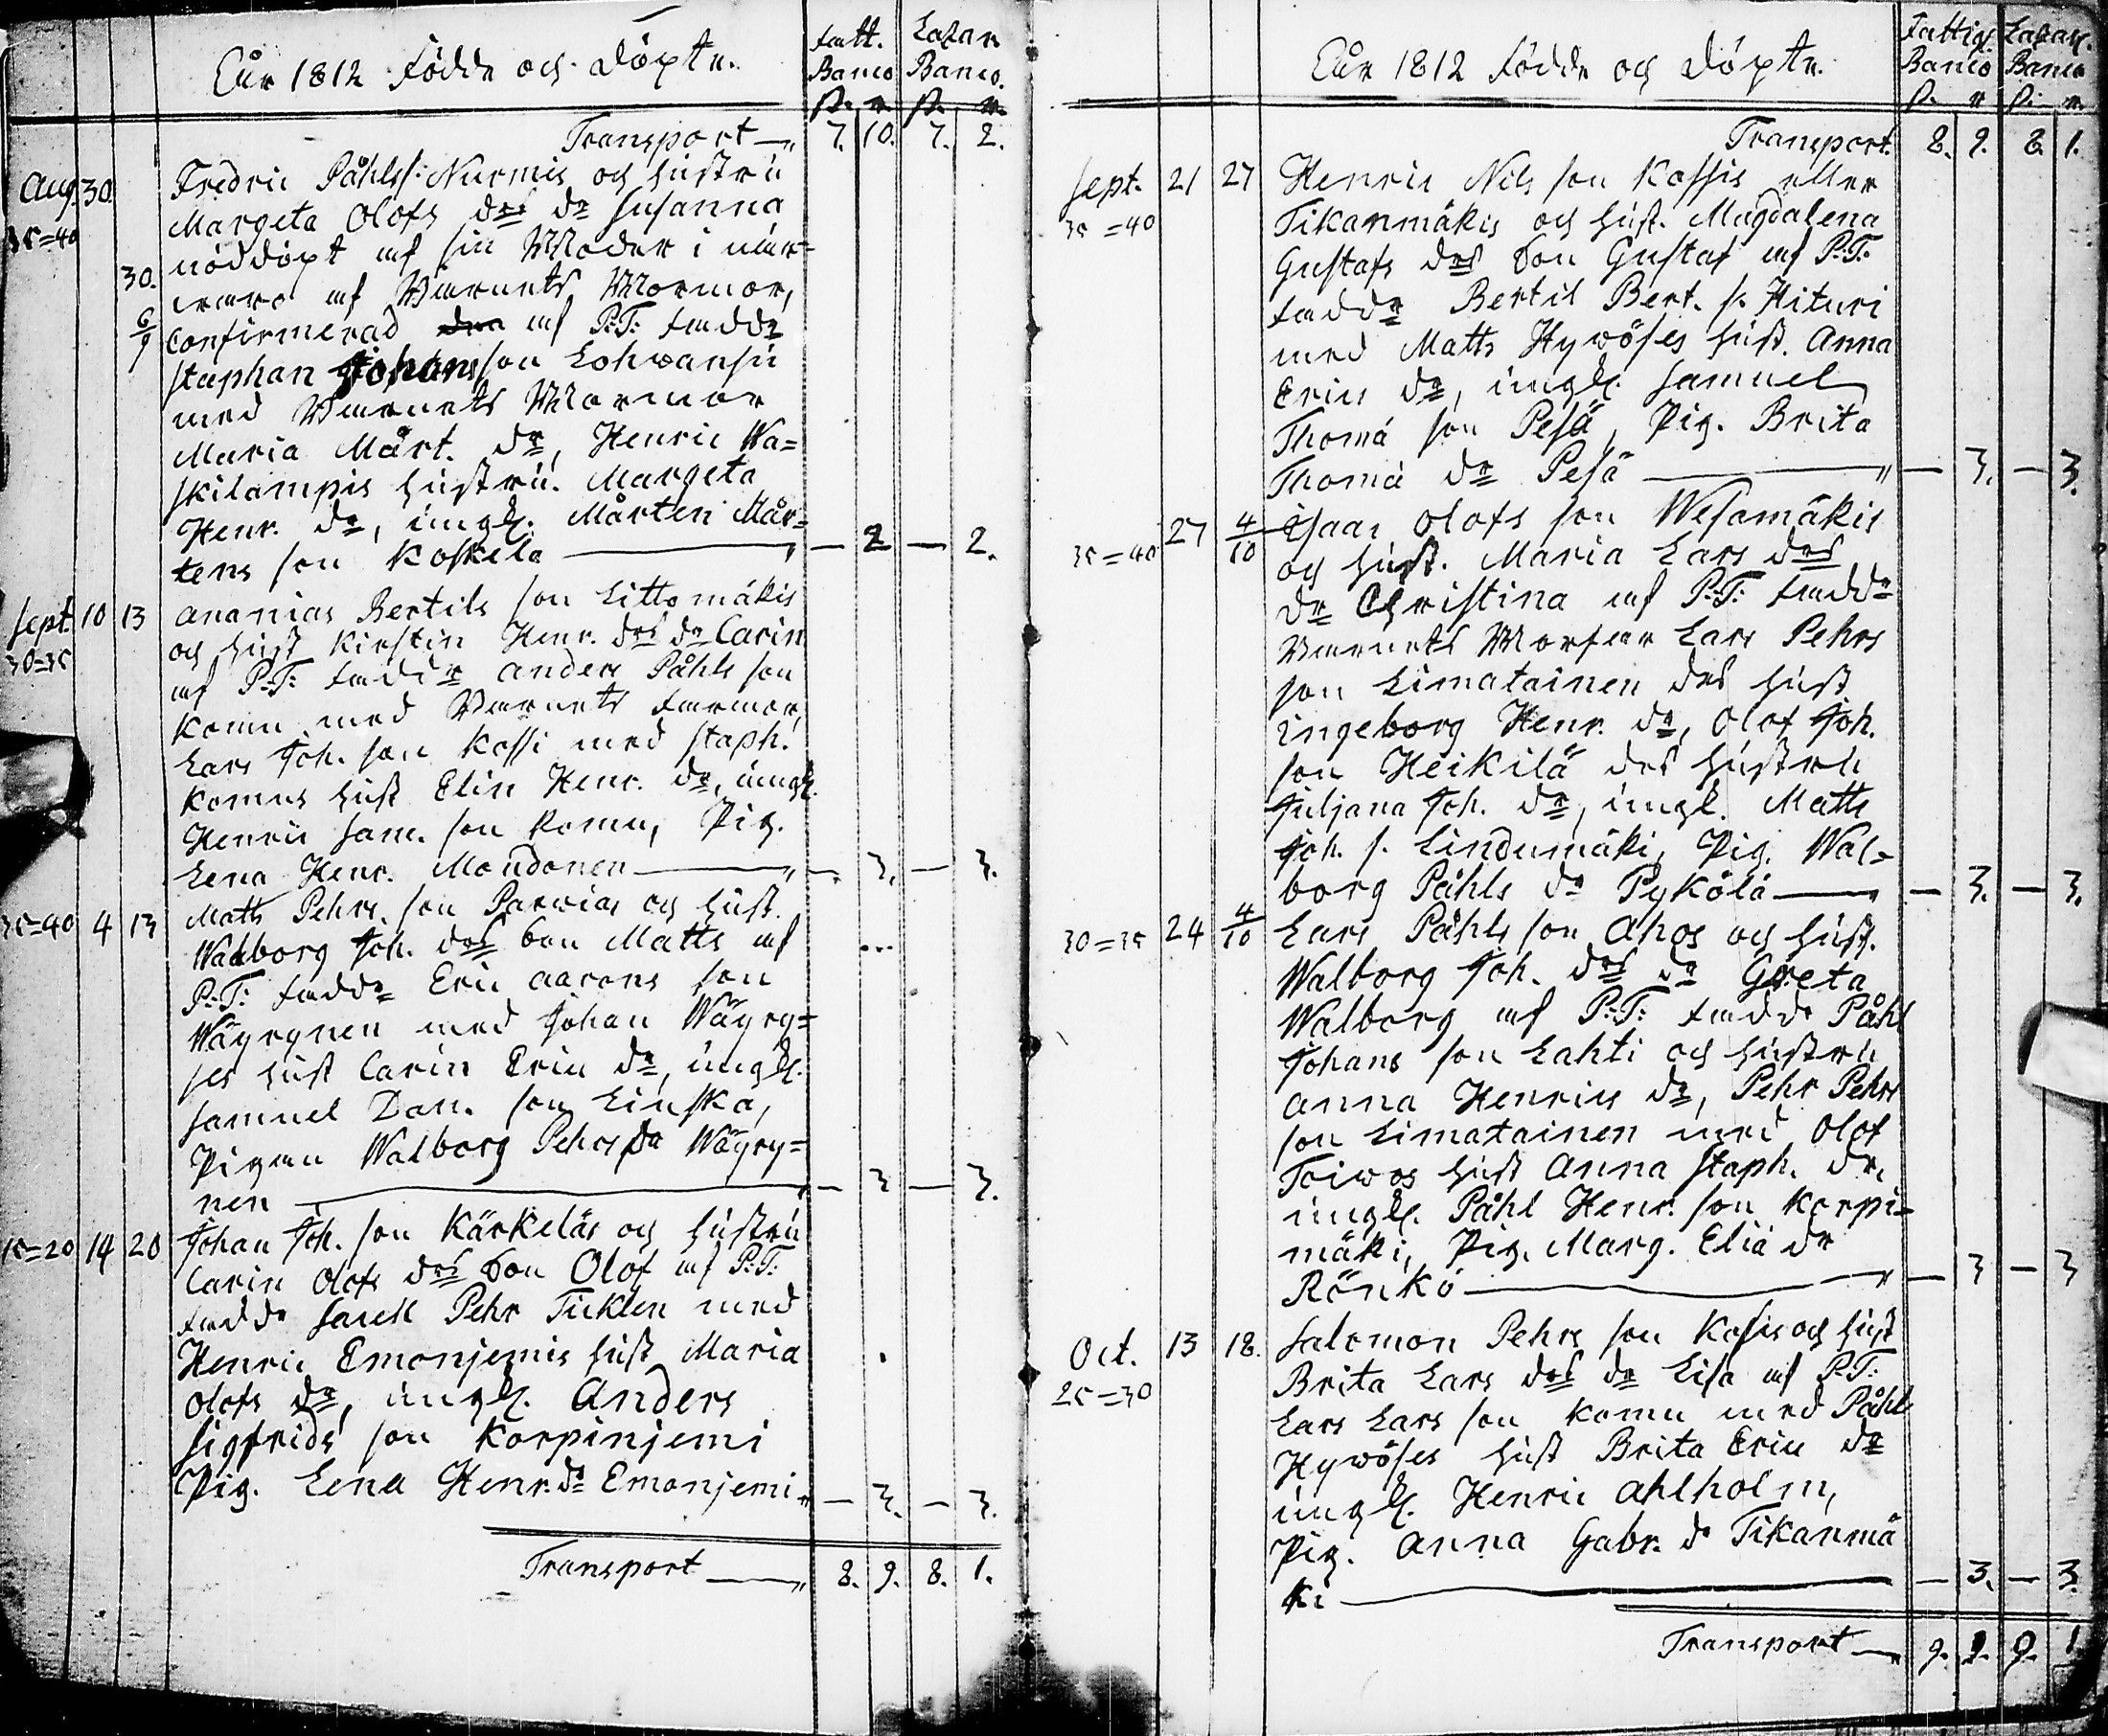 Eår 1812 födda och döpte.
Fatt. Banco s. r.
Lazar. Banco. s. r.
Transport — 7. 10. 7. 2.
Aug. 30. Fredric Påhls s: Nurmis och hustru
35=40 Margeta Olofs des dr Susanna
nöddöpt af sin Moder i när=
30. waro af Barnets Mormor,
6/9 Confirmerad af P:T: fadd.
Staphan Johans son Lohwansu
med Barnets Mormor
Maria Mårt. dr, Henric Wa=
skilampis hustru. Margeta
Henr. dr, ungk. Mårten Mår=
tens son Koskela — 2 — 2.
Sept. 10 13 Ananias Bertils son Littomäkis
30=35 och hust Kirstin Henr. des dr Carin
af P:T: faddr Anders Påhls son
Komu med Barnets farmor,
Lars Joh. son Kossi med Staph.
Komus hust Elin Henr. dr, ungk.
Henric Sam. son Komu, Pig.
Lena Henr. Moudonen — 3. — 3.
35=40 4 13 Matts Pehrs. son Parwias och hust.
Walborg Joh. des son Matts af
P:T: faddr Eric Aarons son
Wäyrynen med Johan Wäyry=
ses hust Carin Eric dr, ungk.
Samuel Dan. son Linska,
Pigan Walborg Pehrs dr Wäyry=
nen — 3 — 3.
15=20 14 20 Johan Joh. son Kärkeläs och hustru
Carin Olofs des son Olof af P:T:
fadd Sacell Pehr Ticklen med
Henric Emonjemis hust Maria
Olofs dr, ungk. Anders
Sigfrids son Korpinjemi
Pig. Lena Henr. dr Emonjemi — 3. — 3.
Transport — 8. 9. 8. 1.
Eår 1812 födde och döpte.
Fattig. Banco s. r.
Lazar. Banco s. r.
Transport. 8. 9. 8. 1.
Sept. 21 27 Henric Nils son Kassis eller
35=40 Tikanmäkis och hust. Magdalena
Gustafs des son Gustaf af P:T:
faddr Bertil Bert. s. Hituri
med Matts Hywöses hust. Anna
Erics dr, ungk. Samuel
Thomä son Pesä, Pig. Brita
Thomä dr Pesä — 3. — 3.
35=40 27 4/10 Isaac Olofs son Wesamäkis
och hust. Maria Lars des
dr Christina af P:T: faddr
Barnets Morfar Lars Pehrs
son Limatainen des hust
Ingeborg Henr. dr, Olof Joh.
son Heikilä des hustru
Juljana Joh. dr, ungk. Matts
Joh. s. Lindumäki, Pig. Wal=
borg Påhls dr Pykölä — 3. — 3.
30=35 24 4/10 Lars Påhls son Ahos och hust.
Walborg Joh. des dr Greta
Walborg af P:T: fadd Påhl
Johans son Lahti och hustru
Anna Henrics dr, Pehr Pehrs
son Limatainen med Olof
Toiwos hust Anna Staph. dr,
ungk. Påhl Henr. son Korpi=
mäki, Pig. Marg. Eliä dr
Rönkö — 3 — 3
Oct. 13 18. Salomon Pehrs son Kosis och hust
25=30 Brita Lars des dr Lisa af P:T:
Lars Lars son Komu med Påhl
Hywöses hust Brita Eric dr
ungk. Henric Ahlholm,
Pig. Anna Gabr. dr Tikanmä
ki — 3. — 3.
Transport — 9. 9. 9. 1.